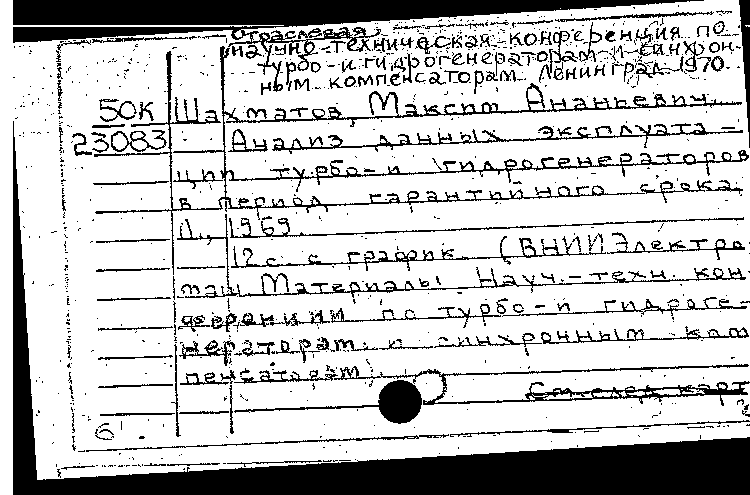 Отраслевая
научно-техническая конференция по
турбо-и гидрогенераторам и синхрон-
ным компенсаторам Ленинград 1970
50К Шахматов, Максим Ананьевич.
23083 Анализ данных эксплуата-
ции турбо-и гидрогенераторов
в период гарантийного срока.
Л., 1969.
12 с. с график. (ВНИИЭлектро
маш Материалы Науч.-техн. кон-
ференции по турбо-и гидроге-
нераторам и синхронным ком
пенсаторам).
См. след карт
6